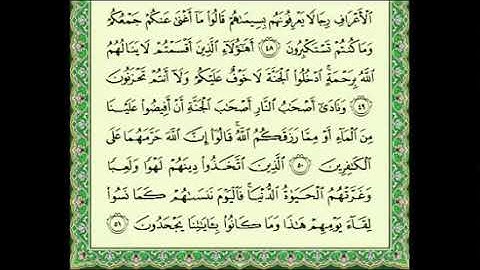 ٱلۡأَعۡرَافِ رِجَالٗا يَعۡرِفُونَهُم بِسِيمَىٰهُمۡ قَالُواْ مَآ أَغۡنَىٰ عَنكُمۡ جَمۡعُكُمۡ
وَمَا كُنتُمۡ تَسۡتَكۡبِرُونَ ٤٨ أَهَٰٓؤُلَآءِ ٱلَّذِينَ أَقۡسَمۡتُمۡ لَا يَنَالُهُمُ
ٱللَّهُ بِرَحۡمَةٍۚ ٱدۡخُلُواْ ٱلۡجَنَّةَ لَا خَوۡفٌ عَلَيۡكُمۡ وَلَآ أَنتُمۡ تَحۡزَنُونَ
٤٩ وَنَادَىٰٓ أَصۡحَٰبُ ٱلنَّارِ أَصۡحَٰبَ ٱلۡجَنَّةِ أَنۡ أَفِيضُواْ عَلَيۡنَا
مِنَ ٱلۡمَآءِ أَوۡ مِمَّا رَزَقَكُمُ ٱللَّهُۚ قَالُوٓاْ إِنَّ ٱللَّهَ حَرَّمَهُمَا عَلَى
ٱلۡكَٰفِرِينَ ٥٠ ٱلَّذِينَ ٱتَّخَذُواْ دِينَهُمۡ لَهۡوٗا وَلَعِبٗا
وَغَرَّتۡهُمُ ٱلۡحَيَوٰةُ ٱلدُّنۡيَاۚ فَٱلۡيَوۡمَ نَنسَىٰهُمۡ كَمَا نَسُواْ
لِقَآءَ يَوۡمِهِمۡ هَٰذَا وَمَا كَانُواْ بِـَٔايَٰتِنَا يَجۡحَدُونَ ٥١